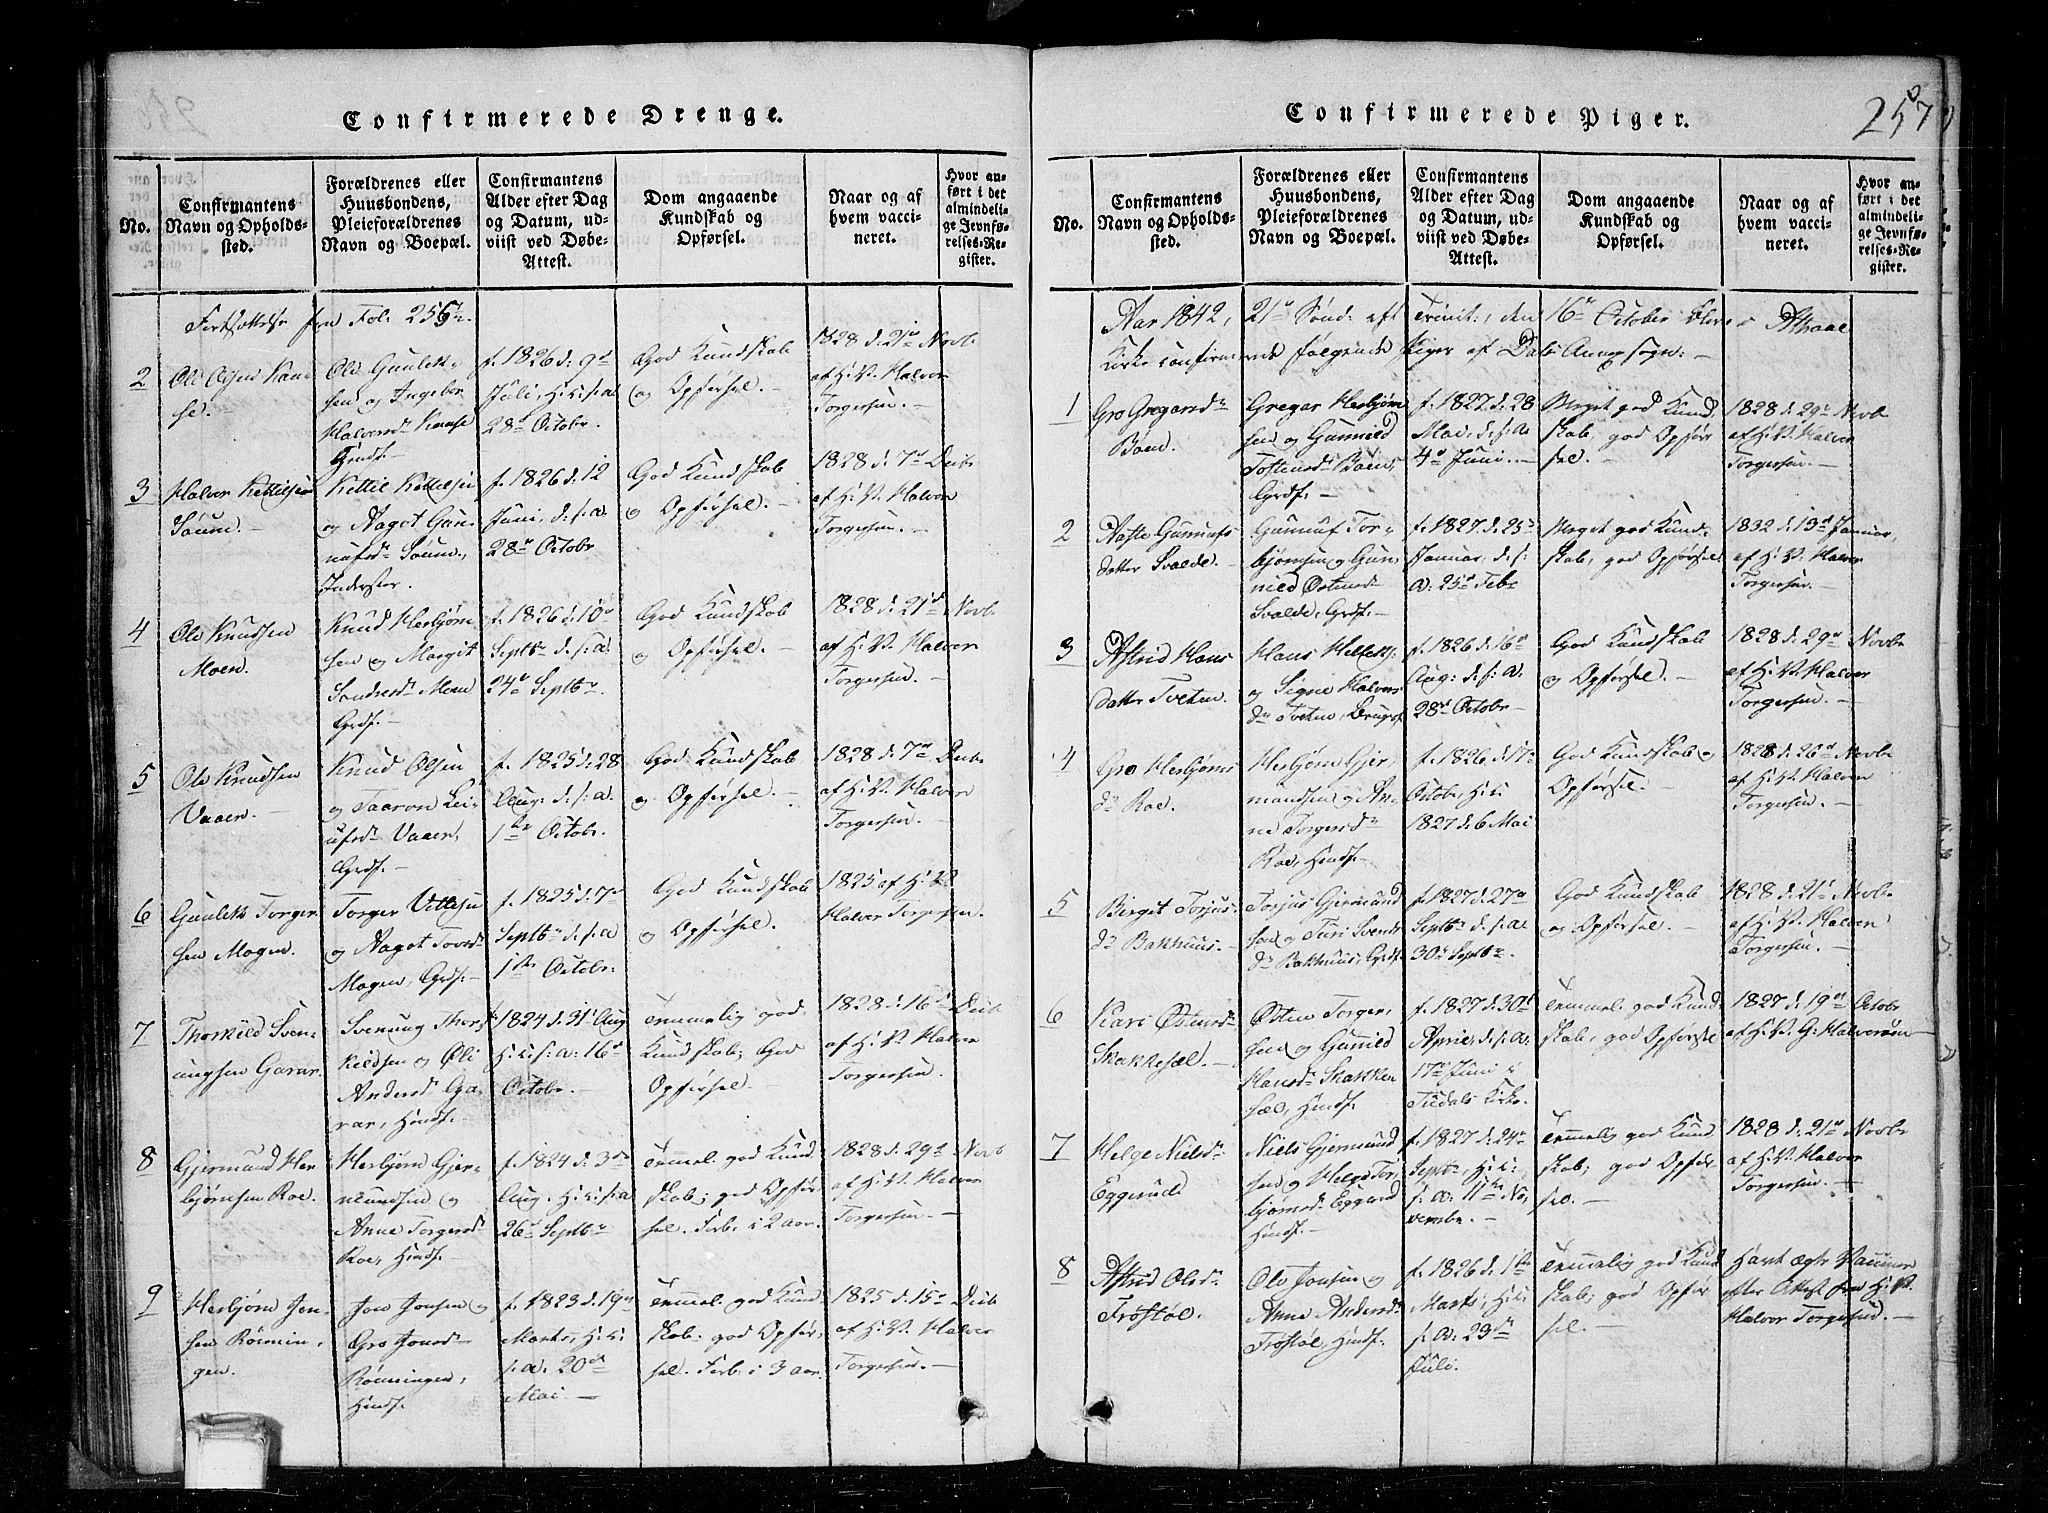 Confirmerede Drenge.
No.
Confirmantens
Navn og Opholds-
sted.
Forældrenes eller
Huusbondens,
Pleieforældrenes
Navn og Boepæl.
Confirmantens
Alder efter Dag
og Datum, ud-
viist ved Døbe-
Attest.
Dom angaaende
Kundskab og
Opførsel.
Naar og af
hvem vacci-
neret.
Hvor an-
ført i det
almindeli-
ge Jevnfø-
relses-Re-
gister.
Fortsættelse fra Fol. 256
2
Ole Olsen
Ole Gunleik-
sen og Ingebor
Halvorsd
f. 1826 d. 9
Juli, H. i. s. a.
28 Octobr.
God Kundskab
og Opførsel. —
1828 d. 21 Novb.
af H. V. Halvor
Torgersen. —
3
Halvor Kettilsen
Sauen. —
Kettil Kettilsen
og Aagot Gun-
nufsd Sauen,
Inderster.
f. 1826 d. 12
Juni, d. s. a.
28 Octobr
God Kundskab
og Opførsel. —
1828 d. 7 Decb.
af H. V. Halvor
Torgersen. —
4
Ole Knudsen
Moen. —
Knud Herbjørn
sen og Margit
Sondresd Moen
Grdf. —
f. 1826 d. 10
Septbr d. s. a.
24 Septbr.
God Kundskab
og Opførsel. —
1828 d. 21 Novb.
af H. V. Halvor
Torgersen. —
5
Ole Knudsen
Vaaer. —
Knud Olsen
og Taaron Lei-
ufsd Vaaer,
Grdf. —
f. 1825 d. 28
Aug. d. s. a.
1 Octobr.
God Kundskab
og Opførsel. —
1828 d. 7 Decb.
af H. V. Halvor
Torgersen. —
6
Gunleik Torger
sen Mogen.
Torger Vetlesen
og Aagot Tovsd
Mogen, Grdf. —
f. 1825 d. 7
Septbr d. s. a
1 Octobr.
God Kundskab
og Opførsel. —
1825 af H. V.
Halvor Torgersen.
7
Thorkild Sven-
ungsen Garar.
Svenung Thor-
kildsen og
Andersd Ga-
rar, Hmdf.
1824 d. 31 Aug
H. i. s. a. 16
Octobr.
Temmelig god
Kundskab; God
Opførsel. —
1828 d. 16 Decb.
af H. V. Halvor
Torgersen.
8
Gjermund Her
bjørnsen Roe.
Herbjørn Gjer-
mundsen og
Anne Torgersd
Roe, Hmdf. —
f. 1824 d. 3
Aug. H. i. s. a
26 Septbr
Temmel. god Kund
skab; god Opfør-
sel. Forb. i 2 aar.
1828 d. 29 Novb
af H. V. Halvor
Torgersen. —
9
Herbjørn Jon-
sen Rønnin-
gen.
Jon Jonsen og
Gro Jonsd
Rønningen,
Hmdf.
f. 1823 d. 19
Marts, H. i.
s. a. 20
Mai —
Temmel. god Kund
skab; god Opfør-
sel. Forb. i 3 aar.
1825 d. 15 Decb
af H. V. Halvor
Torgersen. —
Confirmerede Piger.
257
No.
Confirmantens
Navn og Opholds-
sted.
Forældrenes eller
Huusbondens,
Pleieforældrenes
Navn og Boepæl.
Confirmantens
Alder efter Dag
og Datum, ud-
viist ved Døbe-
Attest.
Dom angaaende
Kundskab og
Opførsel.
Naar og af
hvem vacci-
neret.
Hvor an-
ført i det
almindeli-
ge Jevnfø-
relses-Re-
gister.
Aar 1842, 21 Sønd. eft Trinit., den 16 October blev i Atraae
Kirke confirmerede følgende Piger af Dals Annexsogn. —
1
Gro Gregarsd
Boen.
Gregar Herbjørn
sen og Gunnild
Tostensd Boen,
Grdf. —
f. 1827 d. 28
Mai, d. s. a.
4 Juni. —
Meget god Kund
skab, god Opfør
sel. —
1828 d. 29 Novb.
af H. V. Halvor
Torgersen. —
2
Aaste Gunnufs
datter Svalde. —
Gunnuf Tor-
bjørnsen og Gun-
nild Østensd
Svalde, Grdf. —
f. 1827 d. 25
Januar, d. s.
a. 25 Feb.
Meget god Kund-
skab, god Opførsel
1832 d. 13 Januar,
af H. V. Halvor
Torgersen. —
3
Astrid Hans
datter Tveten.
Hans Helleks.
og Signe Halvors
d Tveten, Brugsf.
f. 1826 d. 16
Aug. d. s. a.
28 Octobr
God Kundskab
og Opførsel. —
1828 d. 29 Novb
af H. V. Halvor
Torgersen. —
4
Gro Herbjørns
d Roe. —
Herbjørn Gjer-
mundsen og An-
ne Torgersd
Roe, Hmdf. —
f. 1826 d. 17
Octobr, H. i.
1827 d. 6 Mai
God Kundskab og
Opførsel. —
1828 d. 26 Novb.
af H. V. Halvor
Torgersen. —
5
Birgit Torjus-
d Bakhuus. —
Torjus Gjermund
sen og Turi Svends
d Bakhuus, Grdf.
f. 1827 d. 27
Septbr d. s. a.
30 Septbr.
God Kundskab
og Opførsel. —
1828 d. 21 Novb.
af H. V. Halvor
Torgersen. —
6
Kari Østensd
Skakkesæl. —
Østen Torger-
sen og Gunnild
Hansd Skakke
sæl, Hmdf.
f. 1827 d. 30
April, d. s. a.
17 Juni i
Tudals Kirke.
Temmel. god Kund
skab, god Opførsel
1827 d. 19 Octobr
af H. V. G. Halvorsen —
7
Helge Nielsd
Eggerude
Niels Gjermund
sen og Helge Tor
bjørnsd Eggerud
Hmdf. —
f. 1827 d. 24
Septbr, H. i.
s. a. 11 No-
vembr. —
Temmelig god Kund
skab; god Opfør
sel. —
1828 d. 21 Novbr
af H. V. Halvor
Torgersen. —
8
Astrid Olsd
Frøstøl.
Ole Jonsen og
Anne Andersd
Frøstøl, Hmdf.
f. 1826 d. 1
Marts, H. i.
s. a. 23
Juli.
Temmelig god Kund
skab; god Opfør
sel. —
Havt ægte Vaccine
efter Attest fra H. V.
Halvor Torgersen. —